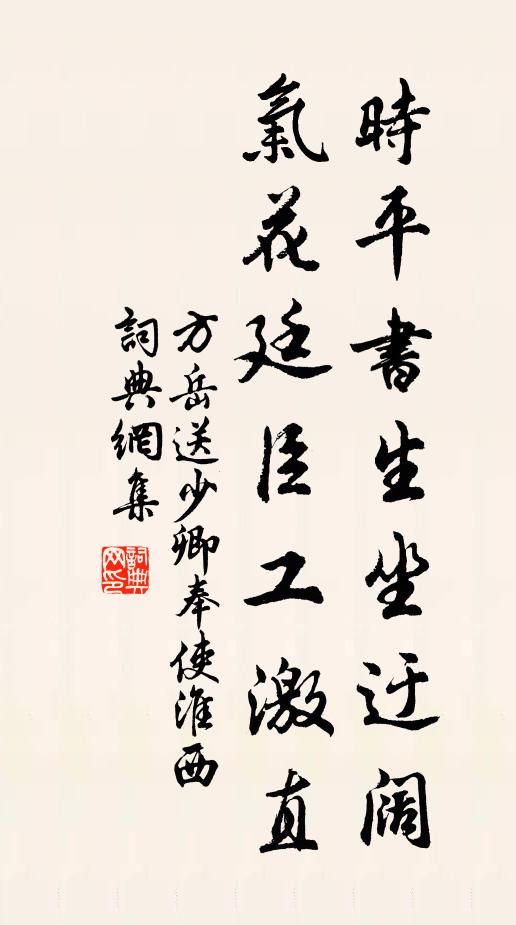 時平書生坐迂阔
氣花廷臣工激直
方岳送少卿奉使淮西
詞典網集
詞典
网印